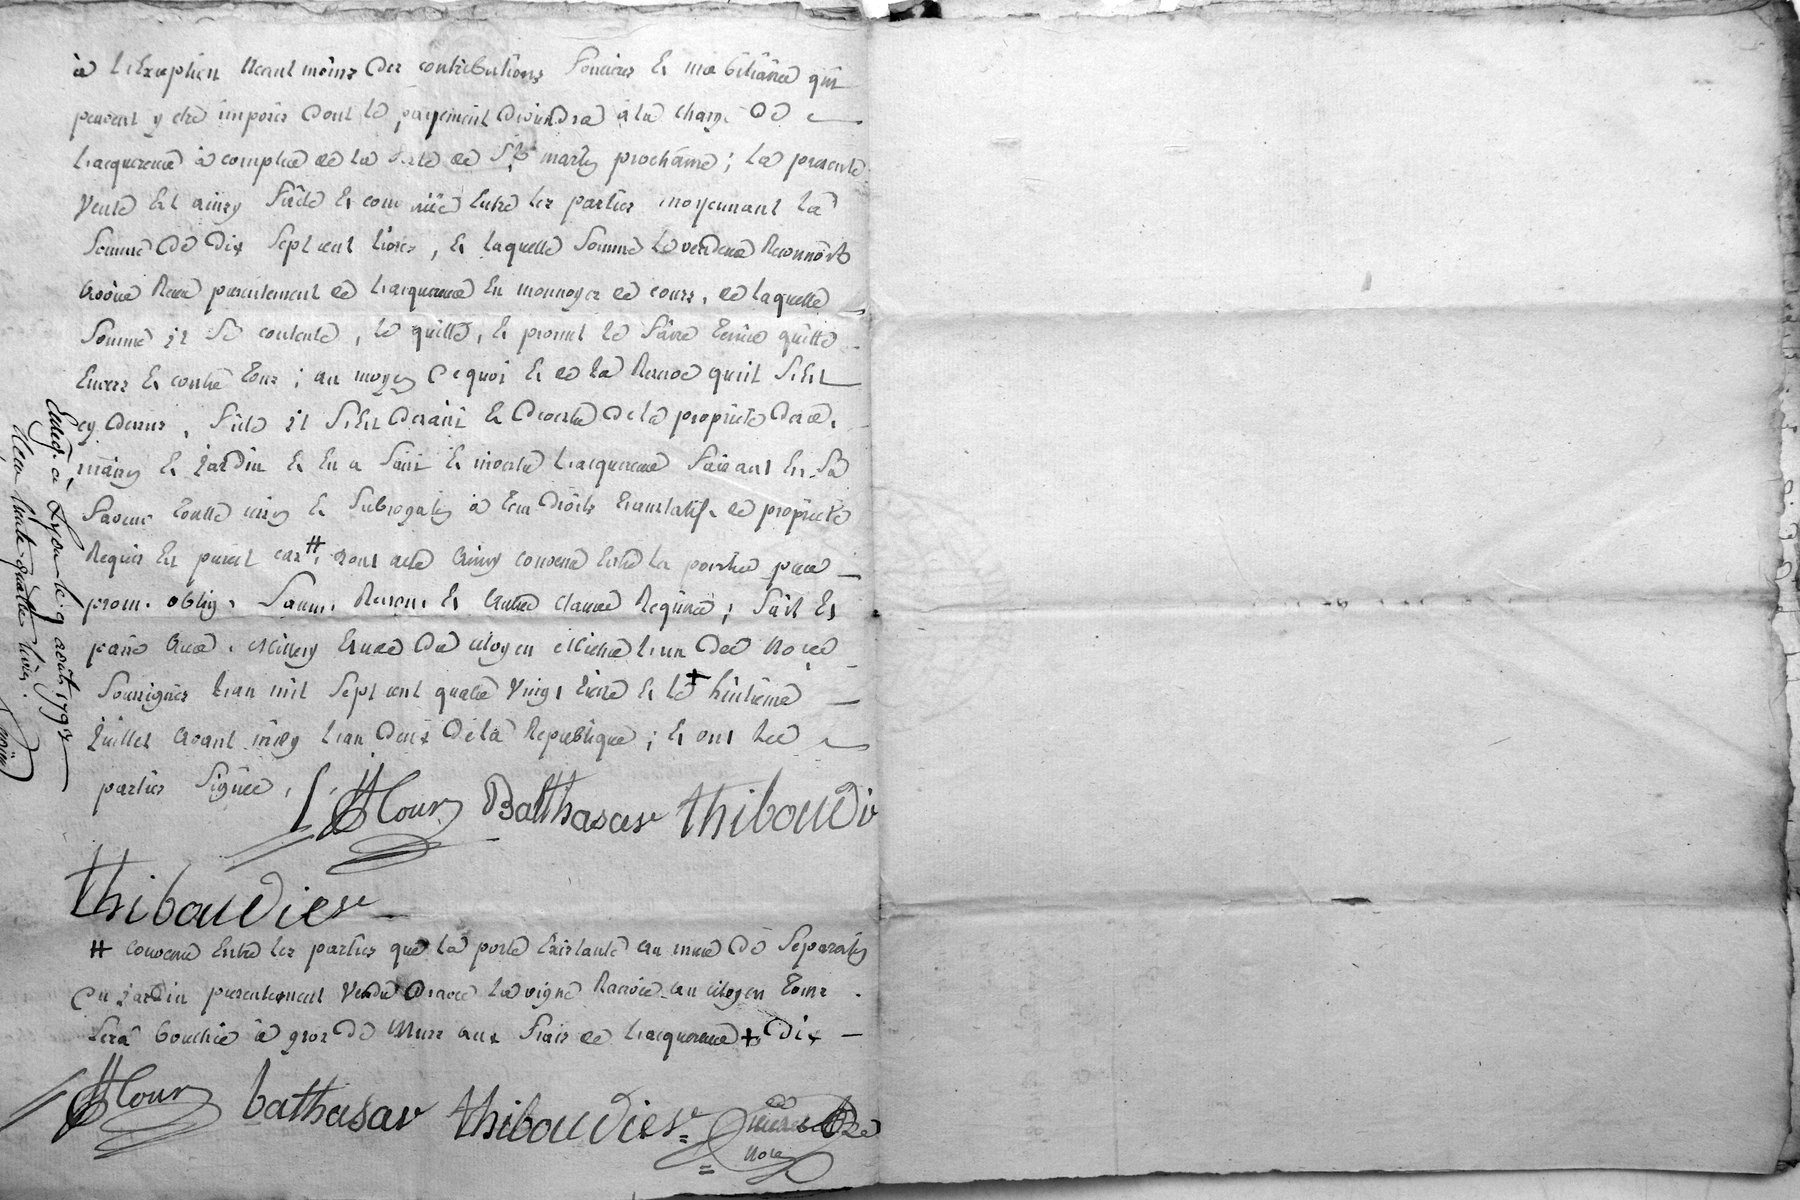 à L'Exeption Neant moins des contributions foncieres Et mobiliaire qui
peuvent y etre imposés dont le payement deviendra à la charge de
L'acquereur à compter de la fete de St martin prochaine ; La presente
vente Est ainsy faite Et convenüe Entre les parties moyennant la
somme de dix sept cent livres , Et laquelle somme le vendeur Reconnoit
avoir Reçu presentement de L'acquereur En monnoyes de cours , de laquelle
somme il se contente , le quitte , Et promet le faire tenir quitte
Envers Et contre tous ; au moyen de quoi Et de la Reserve qu'il s'est
cy dessus , faite il s'est desaisi Et devestu de la propriete des d.
maison Et jardin Et En a saisi Et investu L'acquereur faisant En sa
faveur toutte mison Et subrogation à tous droits translatifs de propriete
Requis En pareil cas # ; dont acte ainsy convenu Entre les parties pour
prom. oblig. soum. Renon. Et autres clauses Requises ; fait Et
passé aud. Millery Etude du citoyen l'un des Nores
soussignés L'an mil sept cent quatre vingt treize Et le + huitième
juillet avant midy L'an deux de la Republique ; Et ont les
parties signée ,
flour Balthasar thibaudier
thibaudier
# convenu Entre les parties que la porte Existante au mur de separation
du jardin presentement vendu d'avec la vigne Reservée au citoyen
sera bouchée à gros de murs aux frais de L'acquereur + dix
flour bathasar thibaudier
Nore
Enreg. à Lyon le 9 août 1793
Reçu trente-quatre livres.